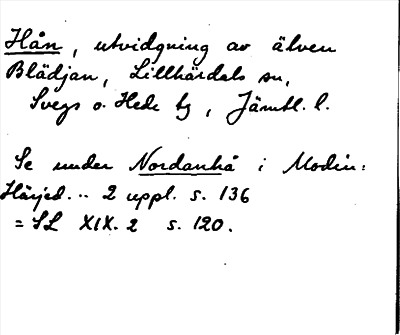 Hån, utvidgning av älven
Blädjan, Lillhärdals sn,
Svegs o. Hede tg, Jämtl. l.
Se under Nordanhå i Modin:
Härjed... 2 uppl. s. 136
= SL XIX. 2 s. 120.